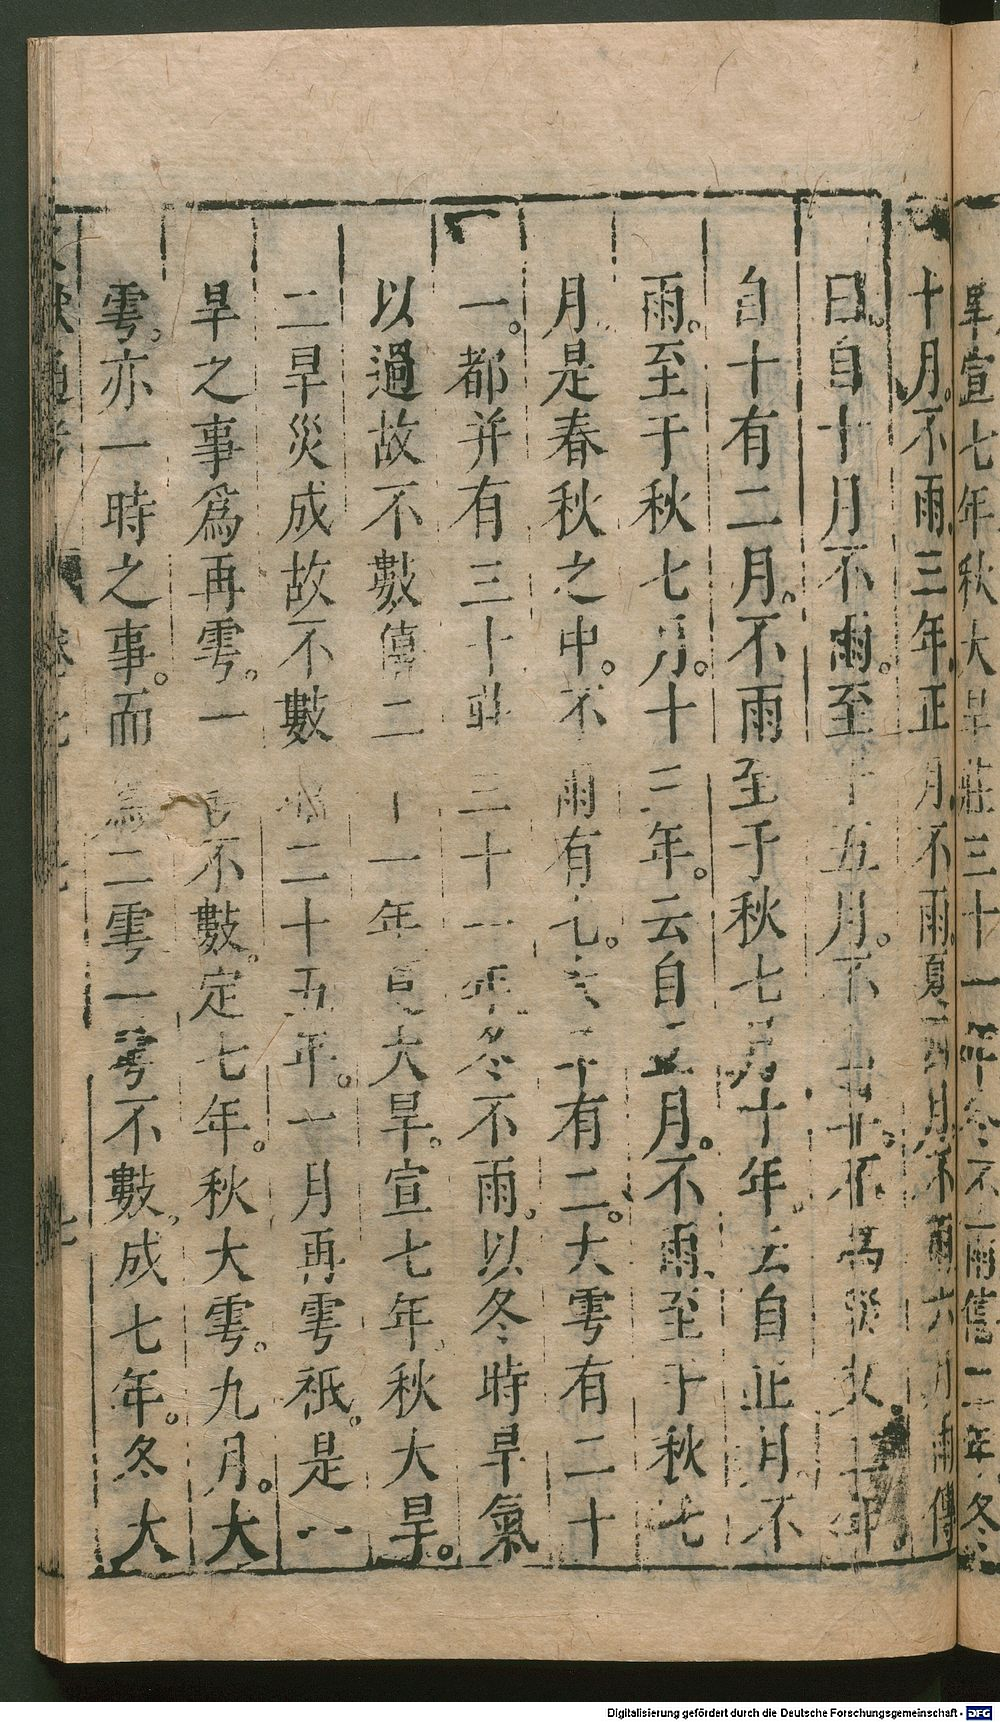 旱宣七年秋大旱莊三十一年冬不雨僖二年冬
十月不雨三年正月不雨夏四月不雨六月雨傳
曰自十月不雨至于五月不曰旱不爲災
自十有二月不雨至于秋七月十年云自正月不
雨至于秋七月十三年云自正月不雨至于秋七
月是春秋之中不雨有七大有二大雩有二十
一都并有三十莊三十一年冬不雨以冬時旱氣
以過故不數僖二十一年夏大旱宣七年秋大旱
二旱災成故不數昭二十五年一月再雩秖是一
旱之事爲再雩一不數定七年秋大雩九月大
雩亦一時之事而爲二雩一雩不數成七年冬大
Digitalisierung gefördert durch die Deutsche Forschungsgemeinschaft - DFG